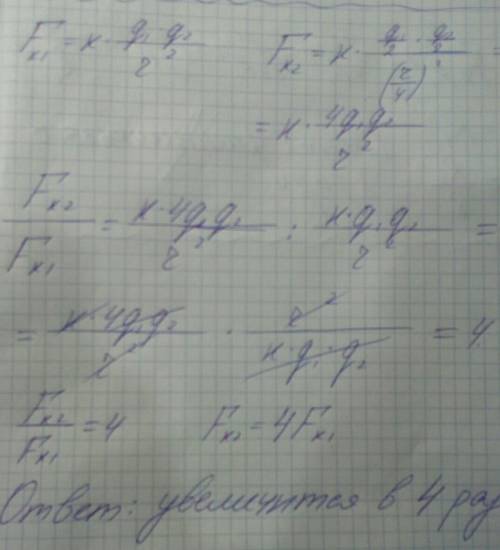 Fк₁ = к · q₁ q₂ / r² Fк₂ = к · (q₁/2 · q₂/2) / (r/4)² =
= к · 4q₁q₂ / r²
Fк₂ / Fк₁ = к·4q₁q₂ / r² : к·q₁q₂ / r² =
= к·4q₁q₂ / r² · r² / к·q₁·q₂ = 4
Fк₂ / Fк₁ = 4 Fк₂ = 4Fк₁
Ответ: увеличится в 4 раз